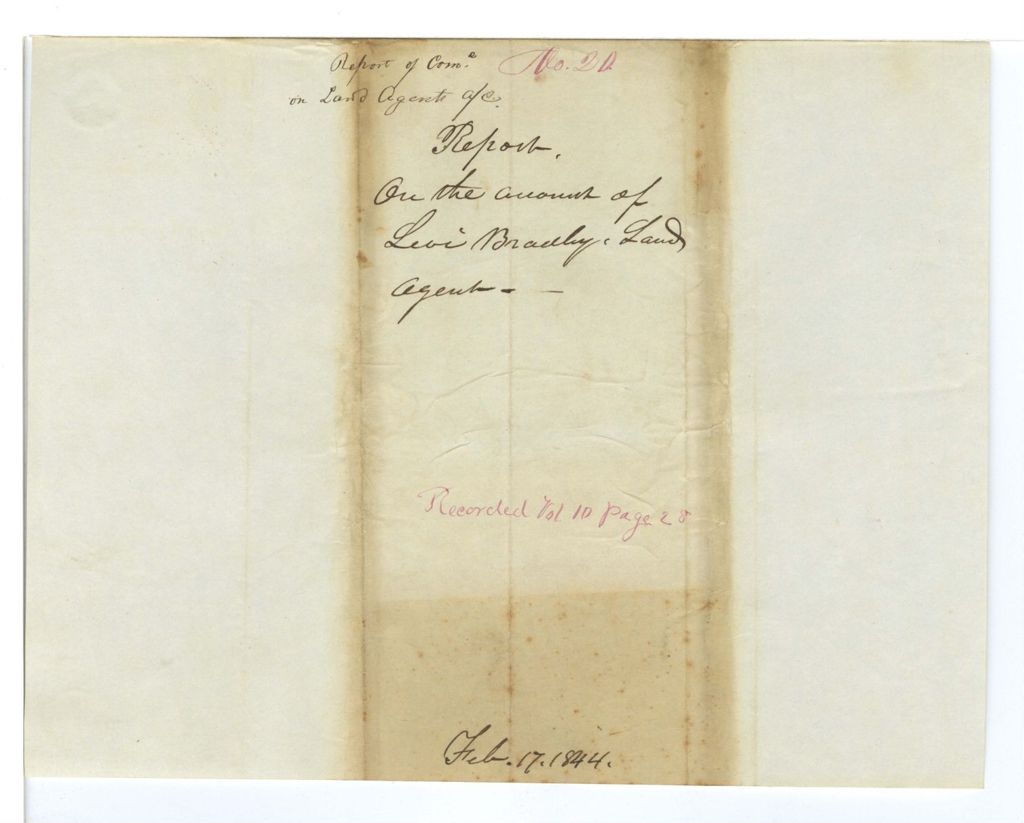 Report of Come. No. 20
on Land Agents a/c.
Report.
On the account of
Levi Bradley. Land
Agent - -
Recorded Vol 10 page 28
Feb. 17. 1844.